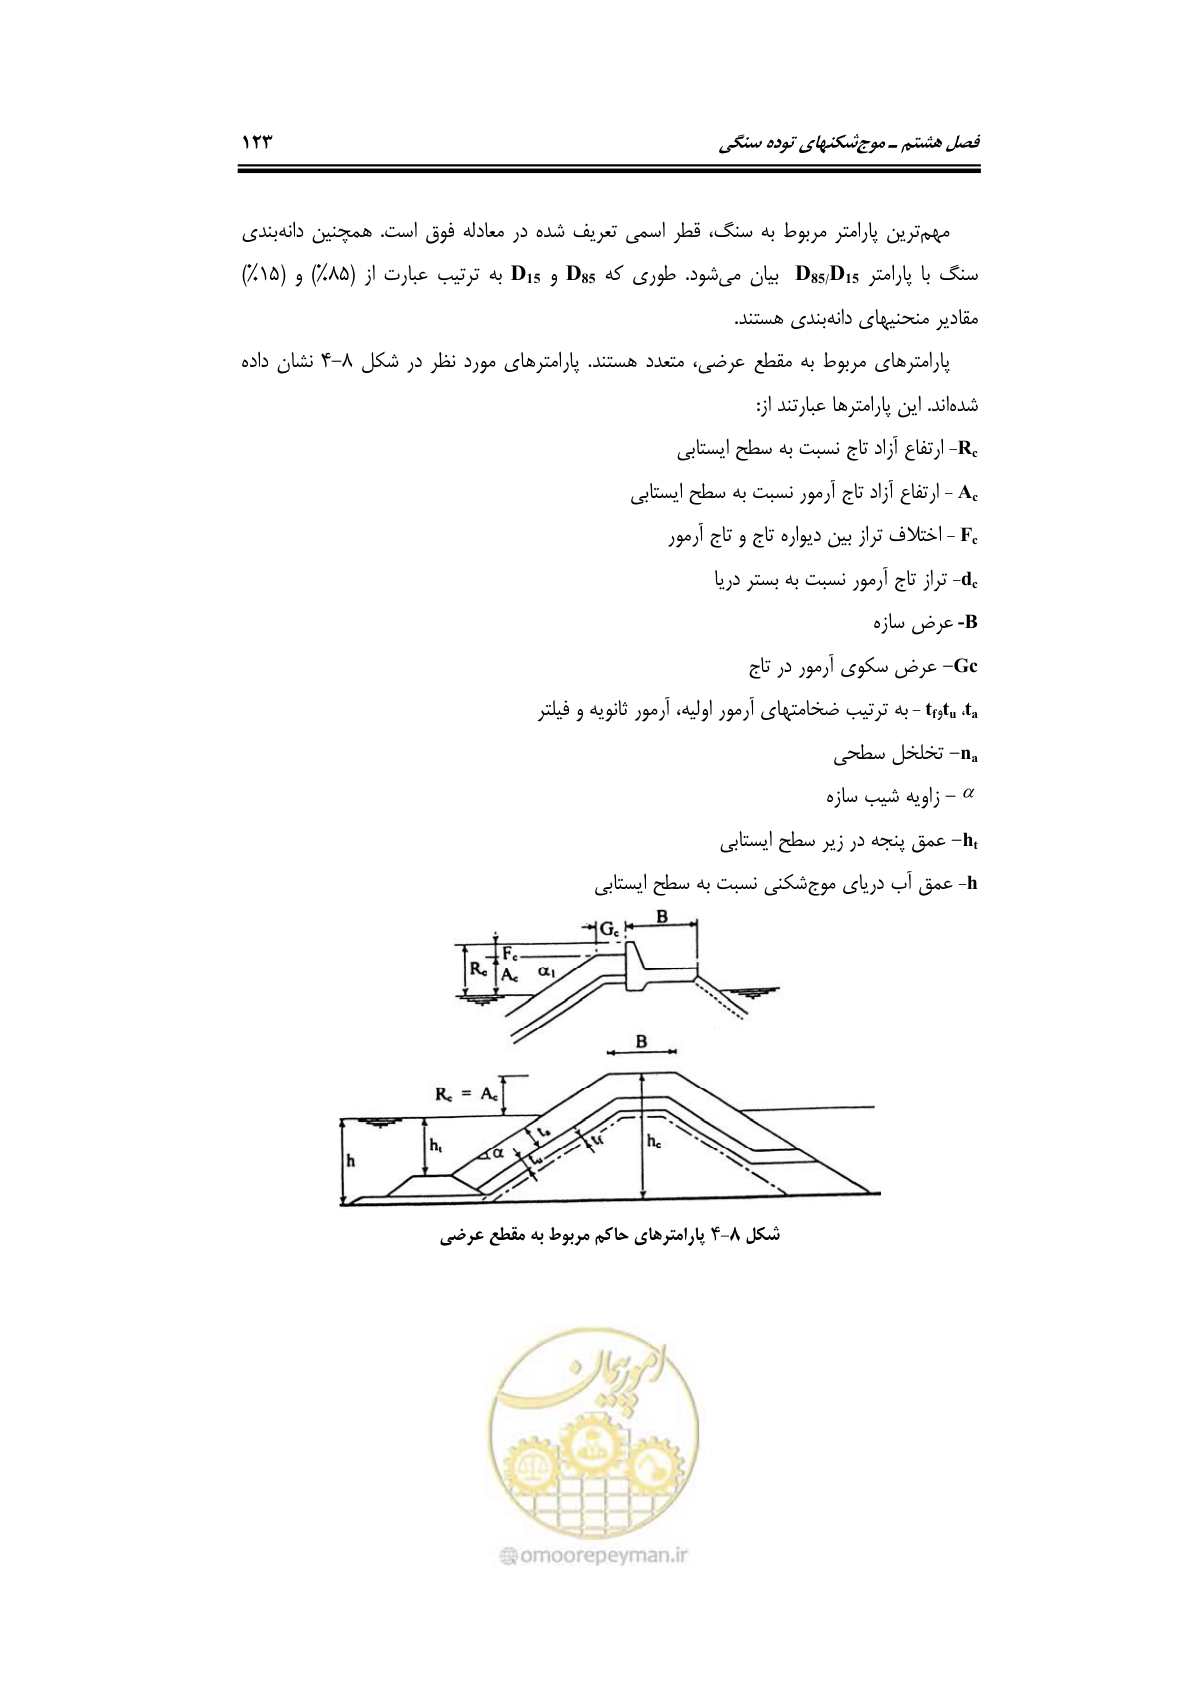 فصل هشتم ـ موج‌شکنهای توده سنگی ۱۲۳
مهم‌ترین پارامتر مربوط به سنگ، قطر اسمی تعریف شده در معادله فوق است. همچنین دانه‌بندی
سنگ با پارامتر D85/D15 بیان می‌شود. طوری که D85 و D15 به ترتیب عبارت از (۸۵٪) و (۱۵٪)
مقادیر منحنیهای دانه‌بندی هستند.
پارامترهای مربوط به مقطع عرضی، متعدد هستند. پارامترهای مورد نظر در شکل ۸–۴ نشان داده
شده‌اند. این پارامترها عبارتند از:
Rc- ارتفاع آزاد تاج نسبت به سطح ایستابی
Ac - ارتفاع آزاد تاج آرمور نسبت به سطح ایستابی
Fc - اختلاف تراز بین دیواره تاج و تاج آرمور
dc- تراز تاج آرمور نسبت به بستر دریا
B- عرض سازه
Gc– عرض سکوی آرمور در تاج
ta، tu و tf - به ترتیب ضخامتهای آرمور اولیه، آرمور ثانویه و فیلتر
na– تخلخل سطحی
α – زاویه شیب سازه
ht– عمق پنجه در زیر سطح ایستابی
h- عمق آب دریای موج‌شکنی نسبت به سطح ایستابی
Gc B
Fc
Rc Ac α1
B
Rc = Ac
ht ta tf hc
h α tu
شکل ۸–۴ پارامترهای حاکم مربوط به مقطع عرضی
امور پیمان
@omoorepeyman.ir